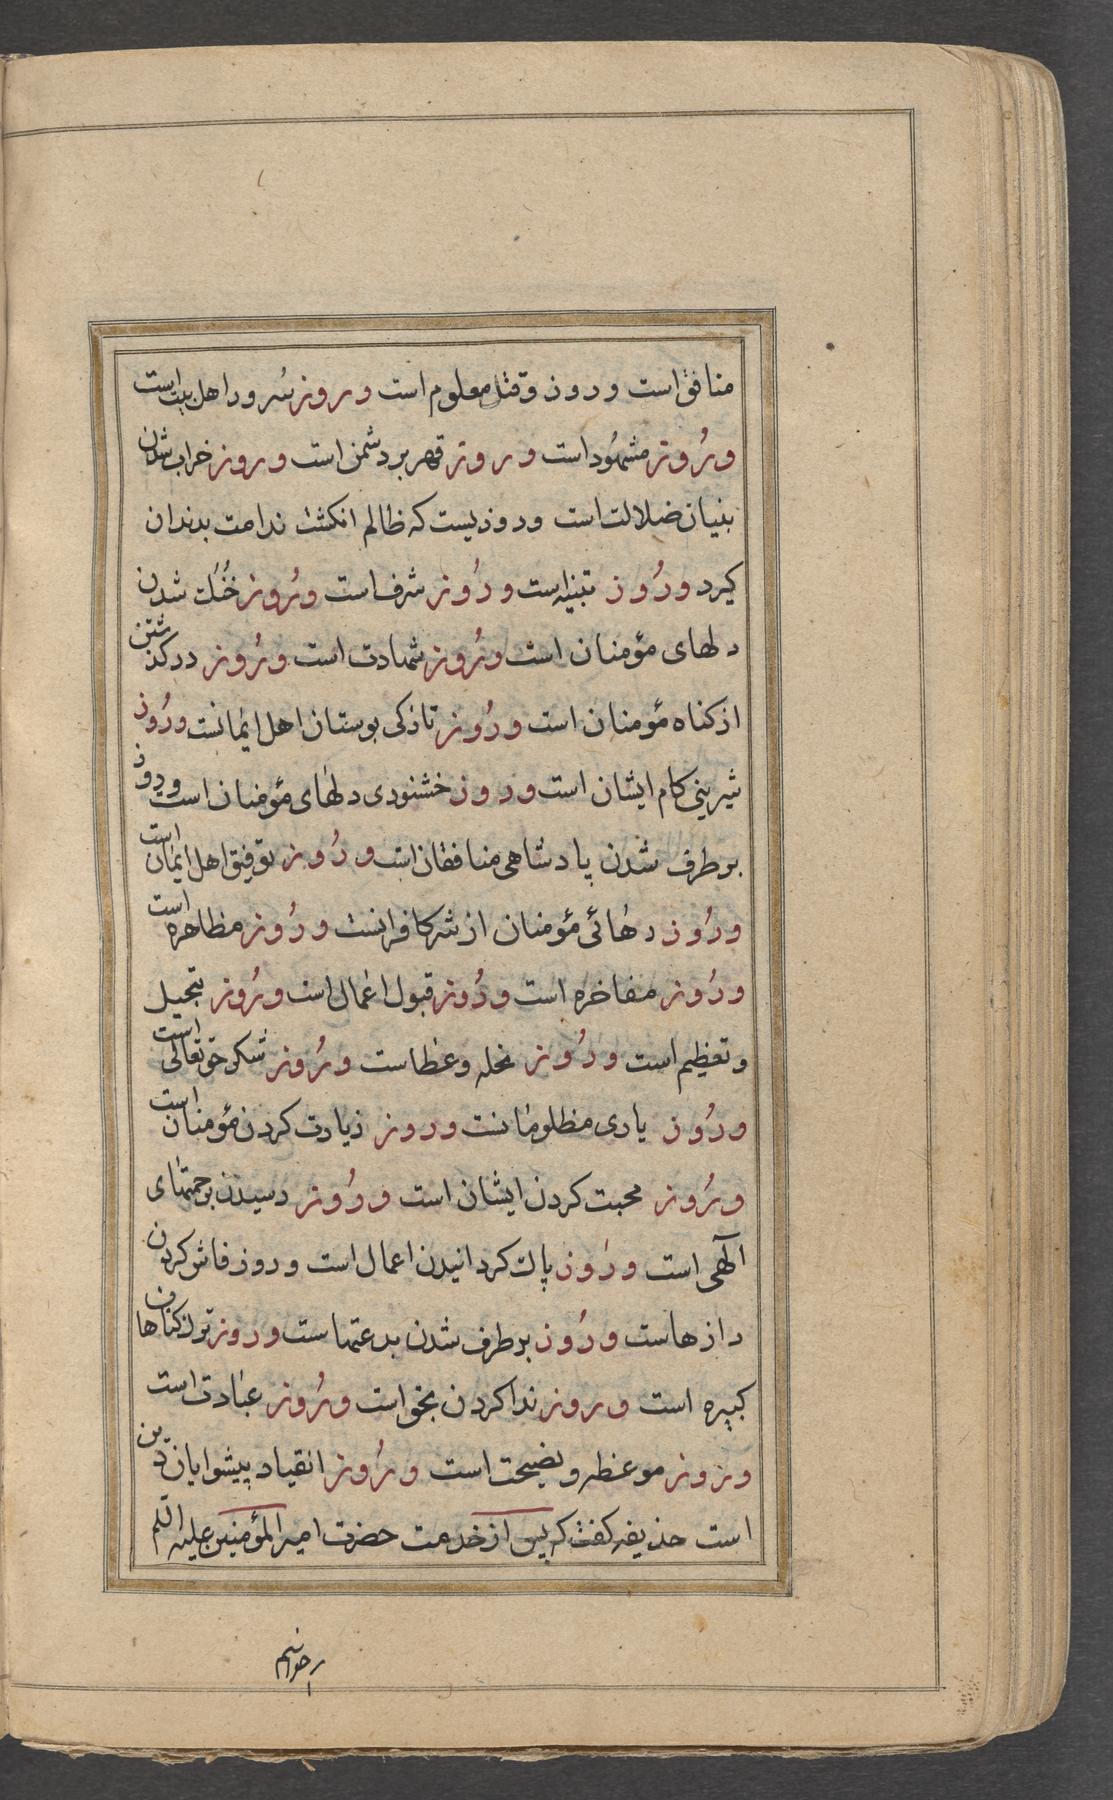 منافق است و روز وقتل معلوم است و روز سُرور اهل بیت است
و رُوز مشهُود است و روز قهر بر دشمن است و روز خراب شدن
بنیان ضلالت است و روزیست که ظالم انکشت ندامت بدندان
کیرد و رُوز تنبیه است و رُوز شرف است و رُوز خُنُک شدن
دلهای مؤمنان است و رُوز شهادت است و رُوز درکذشتن
از کناه مؤمنان است و رُوز تازکی بوستان اهل ایمانست و رُوز
شیرینی کام ایشان است و روز خشنودی دلهای مؤمنان است و روز
برطرف شدن پادشاهی منافقان است و رُوز توفیق اهل ایمان است
و رُوز رهائی مؤمنان از شر کافرانست و رُوز مظاهره است
و رُوز مفاخره است و رُوز قبول اعمال است و رُوز تبجیل
و تعظیم است و رُوز نحله و عطاست و رُوز شکر حق تعالی است
و رُوز یاری مظلومانست و روز زیارت کردن مؤمنان است
و رُوز محبت کردن ایشان است و رُوز رسیدن برحمتهای
الٓهی است و رُوز پاک کردانیدن اعمال است و روز فاش کردن
رازهاست و رُوز برطرف شدن بدعتهاست و روز ترک کناهان
کبیره است و روز ندا کردن بحق است و رُوز عبادت است
و روز موعظه و نصیحت است و رُوز انقیاد پیشوایان دین
است حذیفه کفت که پس از خدمت حضرت امیرالمؤمنین علیه السلم
برخواستم